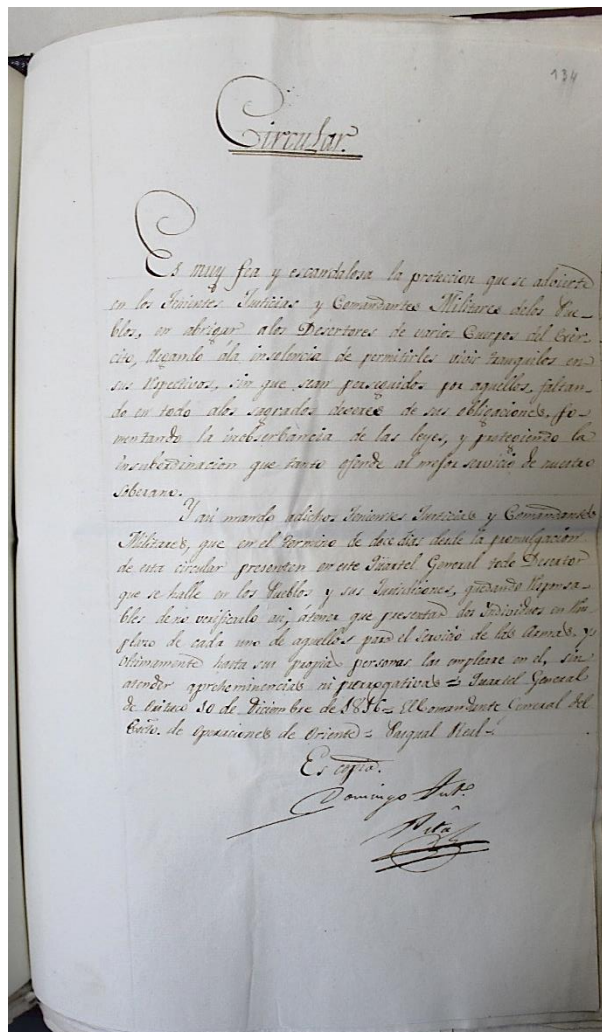 134
Circular.
Es muy fea y escandalosa la proteccion que se advierte
en los Tenientes Justicias y Comandantes Militares delos Pue-
blos, en abrigar alos Desertores de varios Cuerpos del Exer-
cito, llegando ála insolencia de permitirles vivir tranquilos en
sus respectivos, sin que sean perseguidos por aquellos, faltan-
do en todo alos sagrados deveres de sus obligaciones, fo-
mentando la inobserbancia de las leyes, y protegiendo la
insubordinacion que tanto ofende al mejor servicio de nuestro
soberano.
Y asi mando adichos Tenientes Justicias y Comandantes
Militares, que en el termino de doce dias desde la promulgacion
de esta circular presenten en este Quartel General todo Desertor
que se halle en los Pueblos y sus Jurisdiciones, quedando responsa-
bles de no verificarlo asi, átener que presentar dos individuos en
plazo de cada uno de aquellos para el servicio de las Armas, y
ultimamente hasta sus propias personas las empleare en el, sin
atender apreheminencias ni prerrogativas = Quartel General
de Orituco 10 de Diciembre de 1816 = El Comandante General del
Excto. de Operaciones de Oriente = Pasqual Real =
Es copia.
Domingo Antº.
Pita